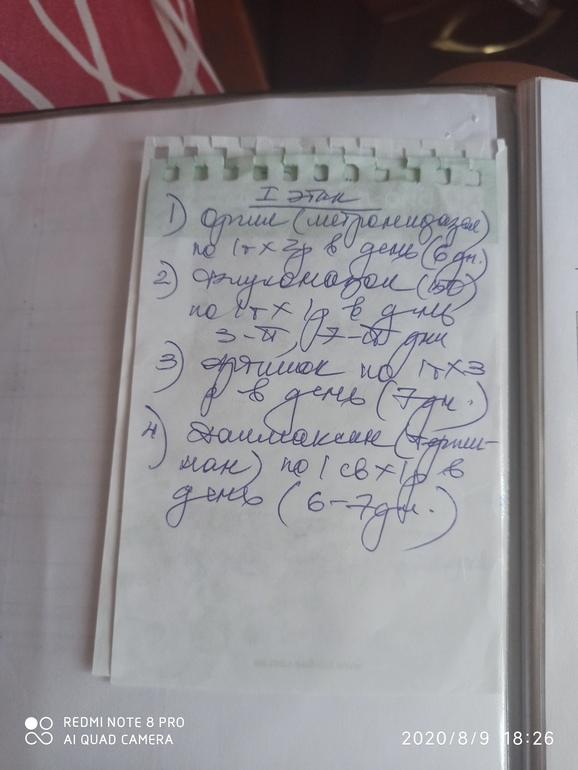 I этап
1) Оргил (метронидазол)
по 1т х 2р в день (6 дн.
2) Флуконазол (150)
по 1т х 1р в день
3-й, 7-й дни
3) Артишок по 1т х 3
р в день (7 дн.)
4) (Тержи-
нан) по 1 св х 1р в
день (6-7 дн.)
REDMI NOTE 8 PRO
AI QUAD CAMERA
2020/8/9 18:26